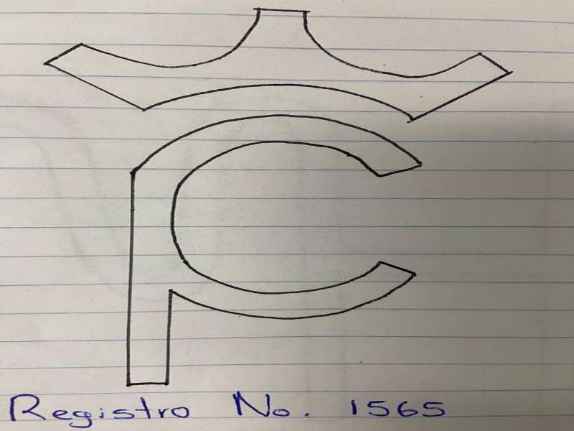 Registro No. 1565